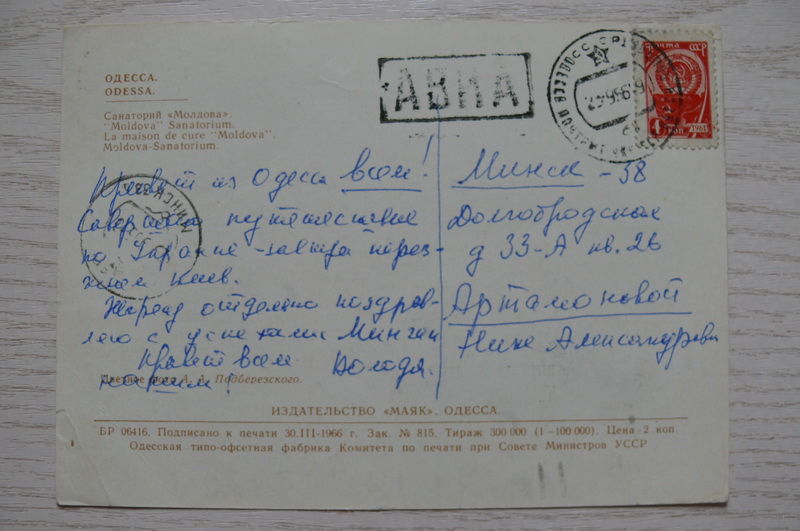 ОДЕССА.
ODESSA.
Санаторий «Молдова».
"Moldova" Sanatorium.
La maison de cure "Moldova".
Moldova-Sanatorium.
АВИА
ПОЧТА СССР
4 КОП 1961
МИНСК
Привет из Одессы всем!
Совершаем путешествие
по Украине - завтра
Киев.
отдельно поздрав-
ляю с успехами
Привет всем Володя.
нашим!
Минск - 38
Долгобродская
д 33-А кв. 26
Артамоновой
Нине Александровне
Подберезского.
ИЗДАТЕЛЬСТВО «МАЯК». ОДЕССА.
БР 06416. Подписано к печати 30.III-1966 г. Зак. № 815. Тираж 300 000 (1—100 000). Цена 2 коп.
Одесская типо-офсетная фабрика Комитета по печати при Совете Министров УССР